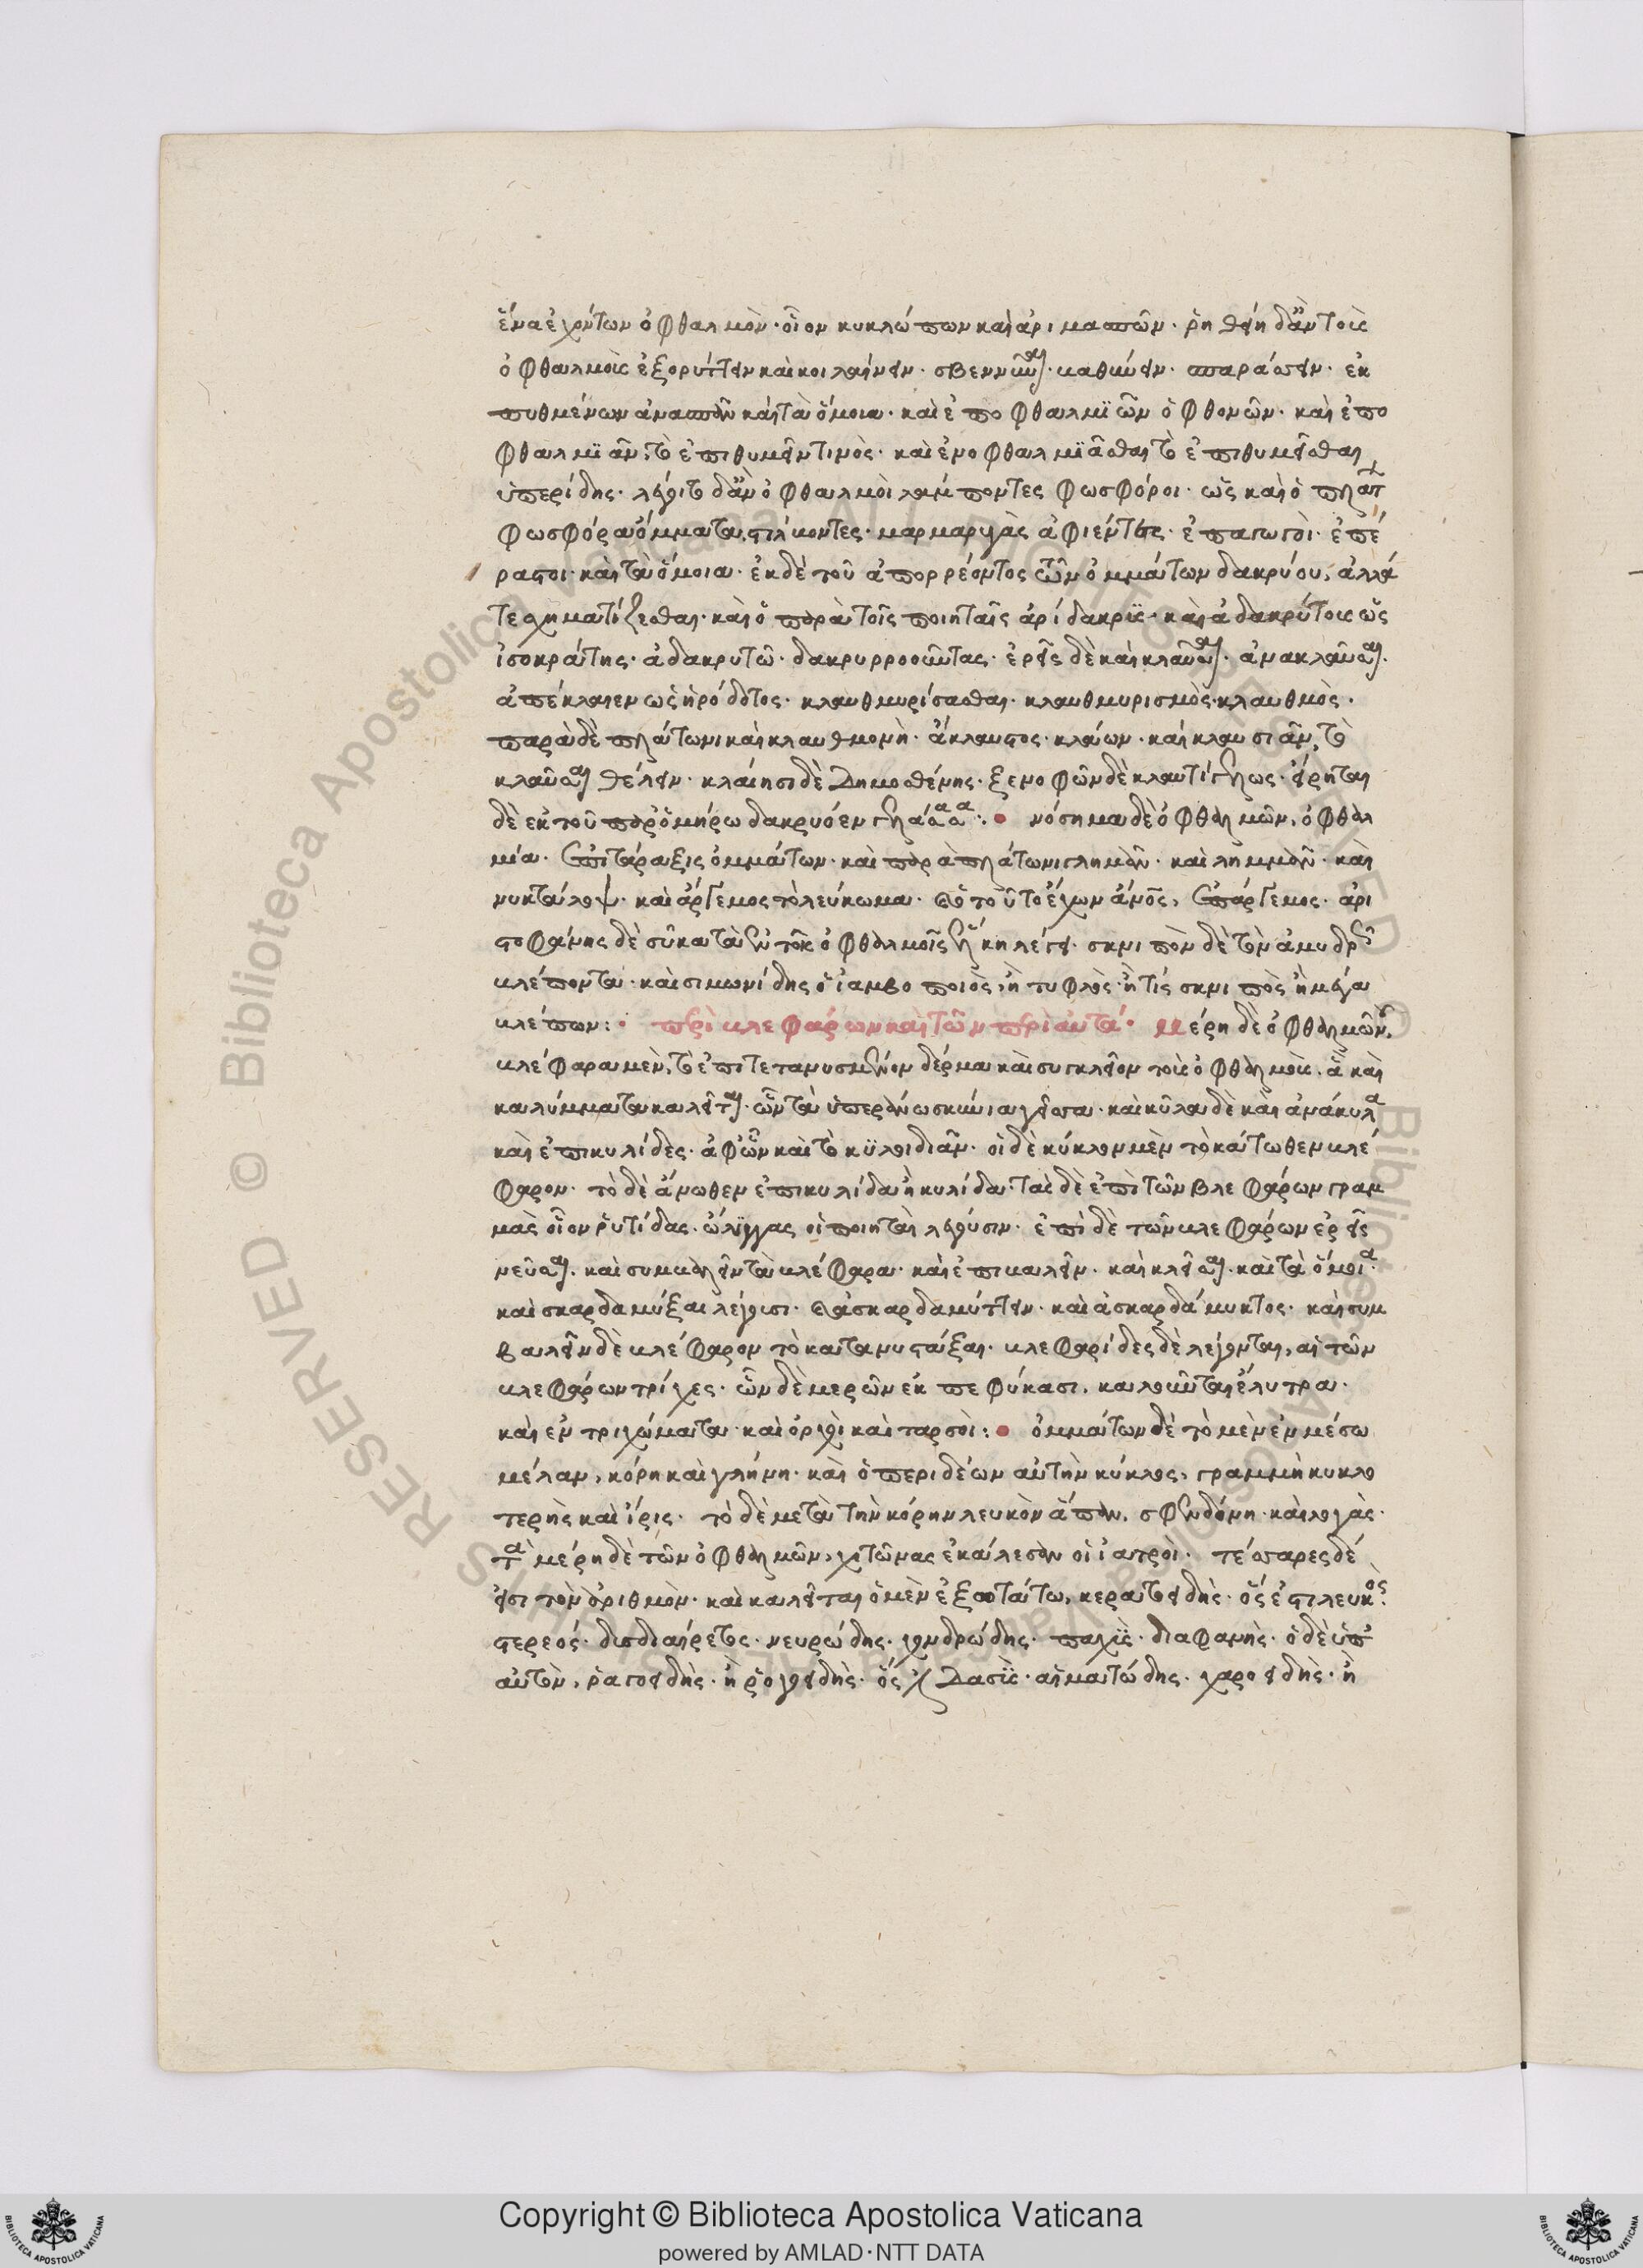 ἕνα ἐχόντων ὀφθαλμὸν· οἷον κυκλώπων καὶ ἀριμασπῶν· ῥηθείη δ' ἂν τοὺς
ὀφθαλμοὺς ἐξορύττειν καὶ κοιλαίνειν· σβεννύναι· καθαιρεῖν· σπαράσσειν· ἐκ
πυθμένων ἀνασπᾶν καὶ τὰ ὅμοια· καὶ ἐποφθαλμιῶν ὁ φθονῶν· καὶ ἐπο
φθαλμιᾶν, τὸ ἐπιθυμεῖν τινὸς· καὶ ἐνοφθαλμιᾶσθαι τὸ ἐπιθυμεῖσθαι
ὑπερίδης· λέγοιτο δ' ἂν ὀφθαλμοὶ λάμποντες φωσφόροι· ὡς καὶ ὁ πλάτ
φωσφόρα ὄμματα, στίλβοντες· μαρμαρυγὰς ἀφιέντες· ἐπαγωγοὶ· ἐπέ
ραστοι· καὶ τὰ ὅμοια· ἐκ δὲ τοῦ ἀπορρέοντος τῶν ὀμμάτων δακρύου, ἄλλά
τε σχηματίζεσθαι· καὶ ὁ παρὰ τοῖς ποιηταῖς ἀρίδακρυς· καὶ ἀδακρύτους ὡς
ἰσοκράτης· ἀδακρυτῶ· δακρυρροοῦντας· ἐρεῖς δὲ καὶ κλαῦσαι· ἀνακλαῦσαι·
ἀπέκλαιεν ὡς ἡρόδοτος· κλαυθμυρίσασθαι· κλαυθμυρισμὸς· κλαυθμὸς·
παρὰ δὲ πλάτωνι καὶ κλαυθμονὴ· ἄκλαυστος· κλαίων· καὶ κλαυσιᾶν, τὸ
κλαῦσαι θέλειν· κλαιήσι δὲ Δημοσθένης· ξενοφῶν δὲ κλαυσιγέλως· εἴρηται
δὲ ἐκ τοῦ παρ' ὁμήρω δακρυόεν γελάσασα· νόσημα δὲ ὀφθαλμῶν, ὀφθαλ
μία· ἐπιτάραξις ὀμμάτων· καὶ παρὰ πλάτωνι γλημᾶν· καὶ λημμᾶν· καὶ
νυκτάλωψ· καὶ ἄργεμος τὸ λεύκωμα· καὶ ὁ τοῦτο ἔχων ἄνος, ἐπάργεμος· ἀρι
στοφάνης δὲ σῦκα τὰ ἐν τοῖς ὀφθαλμοῖς ἕλκη λέγει· σκνιπὸν δὲ τὸν ἀμυδρὸν
βλέποντα· καὶ σιμωνίδης ὁ ἰαμβοποιὸς, ἢ τυφλὸς· ἤ τις σκνιπὸς ἢ μέγα
βλέπων: περὶ βλεφάρων καὶ τῶν περὶ αὐτά· Μέρη δὲ ὀφθαλμῶν,
βλέφαρα μὲν, τὸ ἐπιτεταννυσμένον δέρμα καὶ συγκλεῖον τοὺς ὀφθαλμοὺς, ἃ καὶ
καλύμματα καλεῖται· ὧν τὰ ὑπεράνω σκύνια γεῖσσα· καὶ κῦλα δὲ καὶ ἀνάκυλα
καὶ ἐπικυλίδες· ἀφ' ὧν καὶ τὸ κυλοιδιᾶν· οἱ δὲ κύκλον μὲν τὸ κάτωθεν βλέ
φαρον· τὸ δὲ ἄνωθεν ἐπικυλίδα ἢ κυλίδα· τὰς δὲ ἐπὶ τῶν βλεφάρων γραμ
μὰς οἷον ῥυτίδας· ὤλιγγας οἱ ποιηταὶ λέγουσιν· ἐπὶ δὲ τῶν βλεφάρων ἐρεῖς
νεῦσαι· καὶ συμβαλεῖν τὰ βλέφαρα· καὶ ἐπιβαλεῖν· καὶ κλεῖσαι· καὶ τὰ ὅμοια·
καὶ σκαρδαμύξαι λέγουσι· καὶ ἀσκαρδαμύττειν· καὶ ἀσκαρδάμυκτος· καὶ συμ
βαλεῖν δὲ βλέφαρον τὸ κατανυστάξαι· βλεφαρίδες δὲ λέγονται, αἱ τῶν
βλεφάρων τρίχες· ὧν δὲ μερῶν ἐκπεφύκασι, καλοῦνται ἔλυτρα·
καὶ ἐν τριχώματα· καὶ ὄρχοι καὶ ταρσοὶ: ὀμμάτων δὲ τὸ μὲν ἐν μέσω
μέλαν, κόρη καὶ γλήνη· καὶ ὁ περιδέων αὐτὴν κύκλος, γραμμὴ κυκλο
τερὴς καὶ ἴρις· τὸ δὲ μετὰ τὴν κόρην λευκὸν ἅπαν, σφενδόνη· καὶ λογὰς·
τὰ μέρη δὲ τῶν ὀφθαλμῶν, χιτῶνας ἐκάλεσαν οἱ ἰατροὶ· τέσσαρες δέ
εἰσι τὸν ἀριθμὸν· καὶ καλεῖται ὁ μὲν ἐξωτάτω, κερατοειδὴς· ὅς ἐστι λευκὸς·
στερεός· δυσδιαίρετος· νευρώδης· χονδρώδης· παχὺς· διαφανὴς· ὁ δὲ ὑπ'
αὐτὸν, ῥαγοειδὴς· ἢ ῥογοειδὴς· ὅς ἐστι Δασὺς· αἱματώδης· χαροειδὴς· ἢ
Copyright © Biblioteca Apostolica Vaticana
powered by AMLAD·NTT DATA